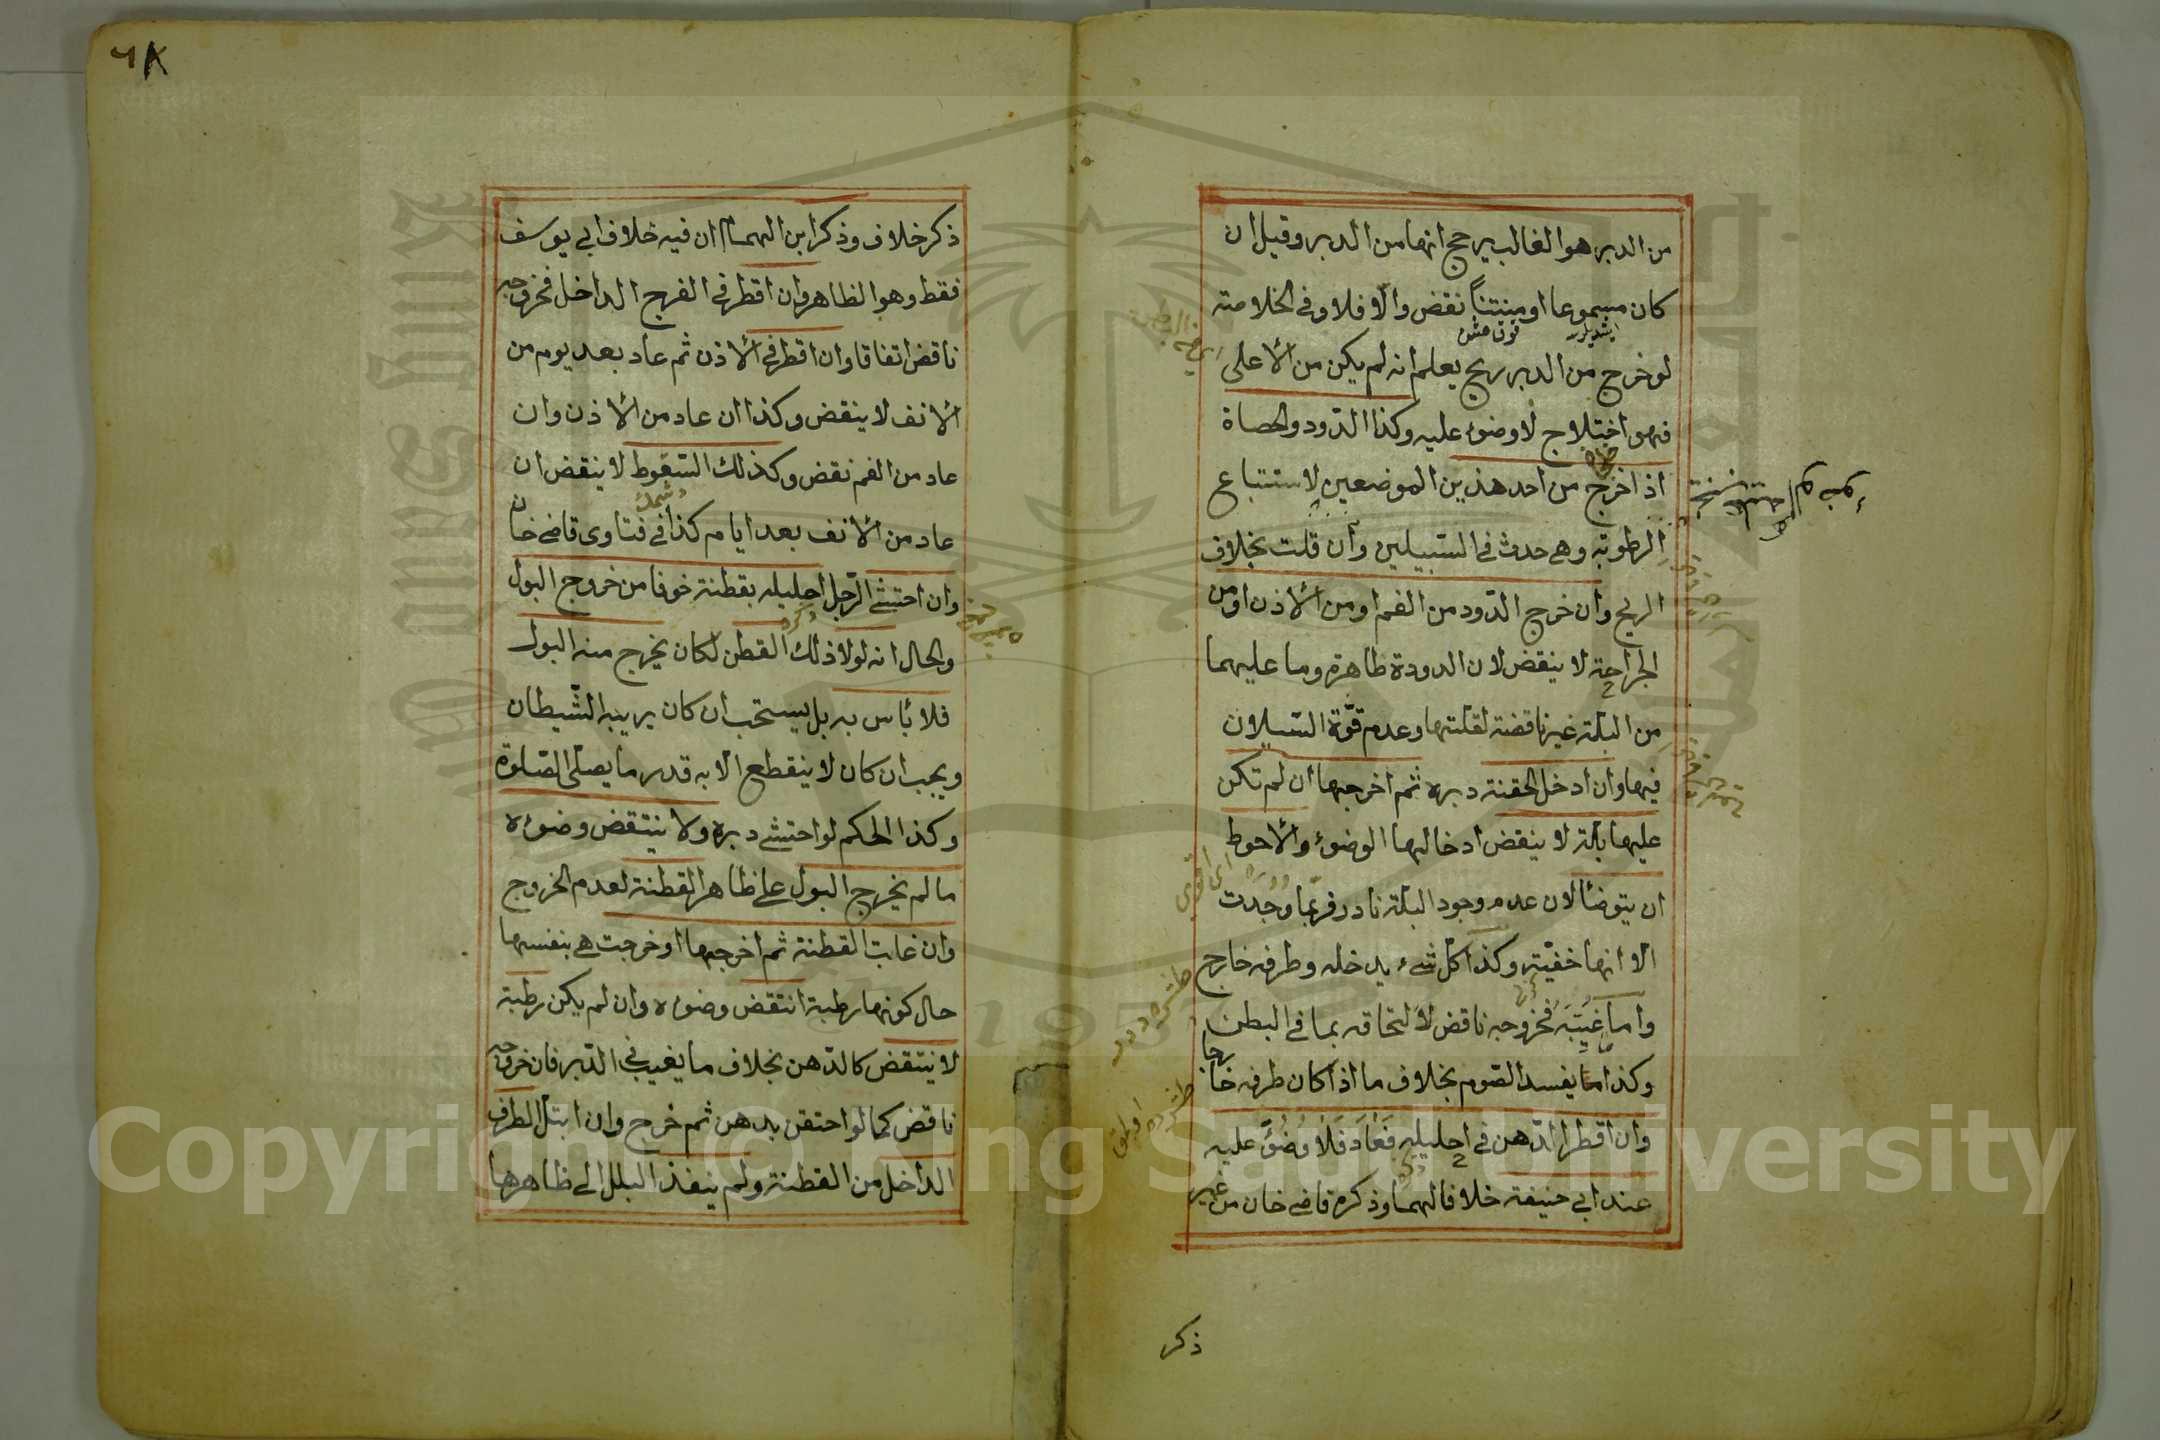 من الدبر هو الغالب يرجح انها من الدبر وقيل ان
كان مسموعا او منتنا نقض والا فلا وفي الخلاصة
لو خرج من الدبر ريح يعلم انه لم يكن من الاعلى
فهو اختلاج لا وضوء عليه وكذا الدود والحصاة
اذا خرج من احد هذين الموضعين لاستتباع
الرطوبة وهي حدث في السبيلين وان قلت بخلاف
الريح وان خرج الدود من الفم او من الاذن او من
الجراحة لا ينقض لان الدودة طاهرة وما عليها
من البلة غير ناقضة لقلتها وعدم قوة السيلان
فيها وان ادخل الحقنة دبره ثم اخرجها ان لم تكن
عليها بلة لا ينقض ادخالها الوضوء والاحوط
ان يتوضأ لان عدم وجود البلة نادر فربما وجدت
الا انها خفية وكذا كل شيء يدخله وطرفه خارج
واما غيبه فخروجه ناقض لالتحاقه بما في البطن
وكذا مما يفسد الصوم بخلاف ما اذا كان طرفه خارجا
وان اقطر الدهن في احليله فعاد فلا وضوء عليه
عند ابي حنيفة خلافا لهما وذكره قاضي خان من غير
ذكر
٦٨
ذكر خلاف وذكر ابن الهمام ان فيه خلاف ابي يوسف
فقط وهو الظاهر وان اقطر في الفرج الداخل فخروجه
ناقض اتفاقا وان اقطر في الاذن ثم عاد بعد يوم من
الانف لا ينقض وكذا ان عاد من الاذن وان
عاد من الفم نقض وكذلك السقوط لا ينقض ان
عاد من الانف بعد ايام كذا في فتاوى قاضي خان
وان احتشى الرجل احليله بقطنة خوفا من خروج البول
والحال انه لولا ذلك القطن لكان يخرج منه البول
فلا بأس به بل يستحب ان كان يريبه الشيطان
ويجب ان كان لا ينقطع الا به قدر ما يصلى الصلوة
وكذا الحكم لو احتشى دبره ولا ينتقض وضوءه
ما لم يخرج البول على ظاهر القطنة لعدم الخروج
وان غابت القطنة ثم اخرجها او خرجت هي بنفسها
حال كونها رطبة انتقض وضوءه وان لم يكن رطبة
لا ينتقض كالدهن بخلاف ما يغيب في الدبر فان خروجه
ناقض كما لو احتقن بدهن ثم خرج وان ابتل الطرف
الداخل من القطنة ولم ينفذ البلل الى ظاهرها
Copyright © King Saud University